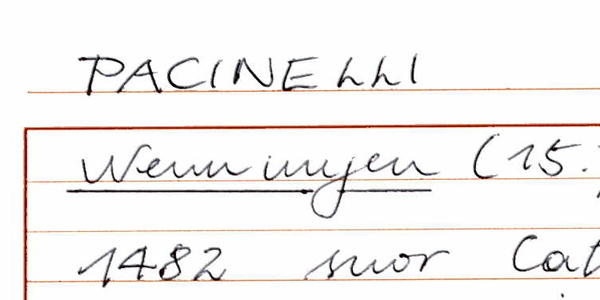 PACINELLI
Wenningen (15.
1482 suor Cat